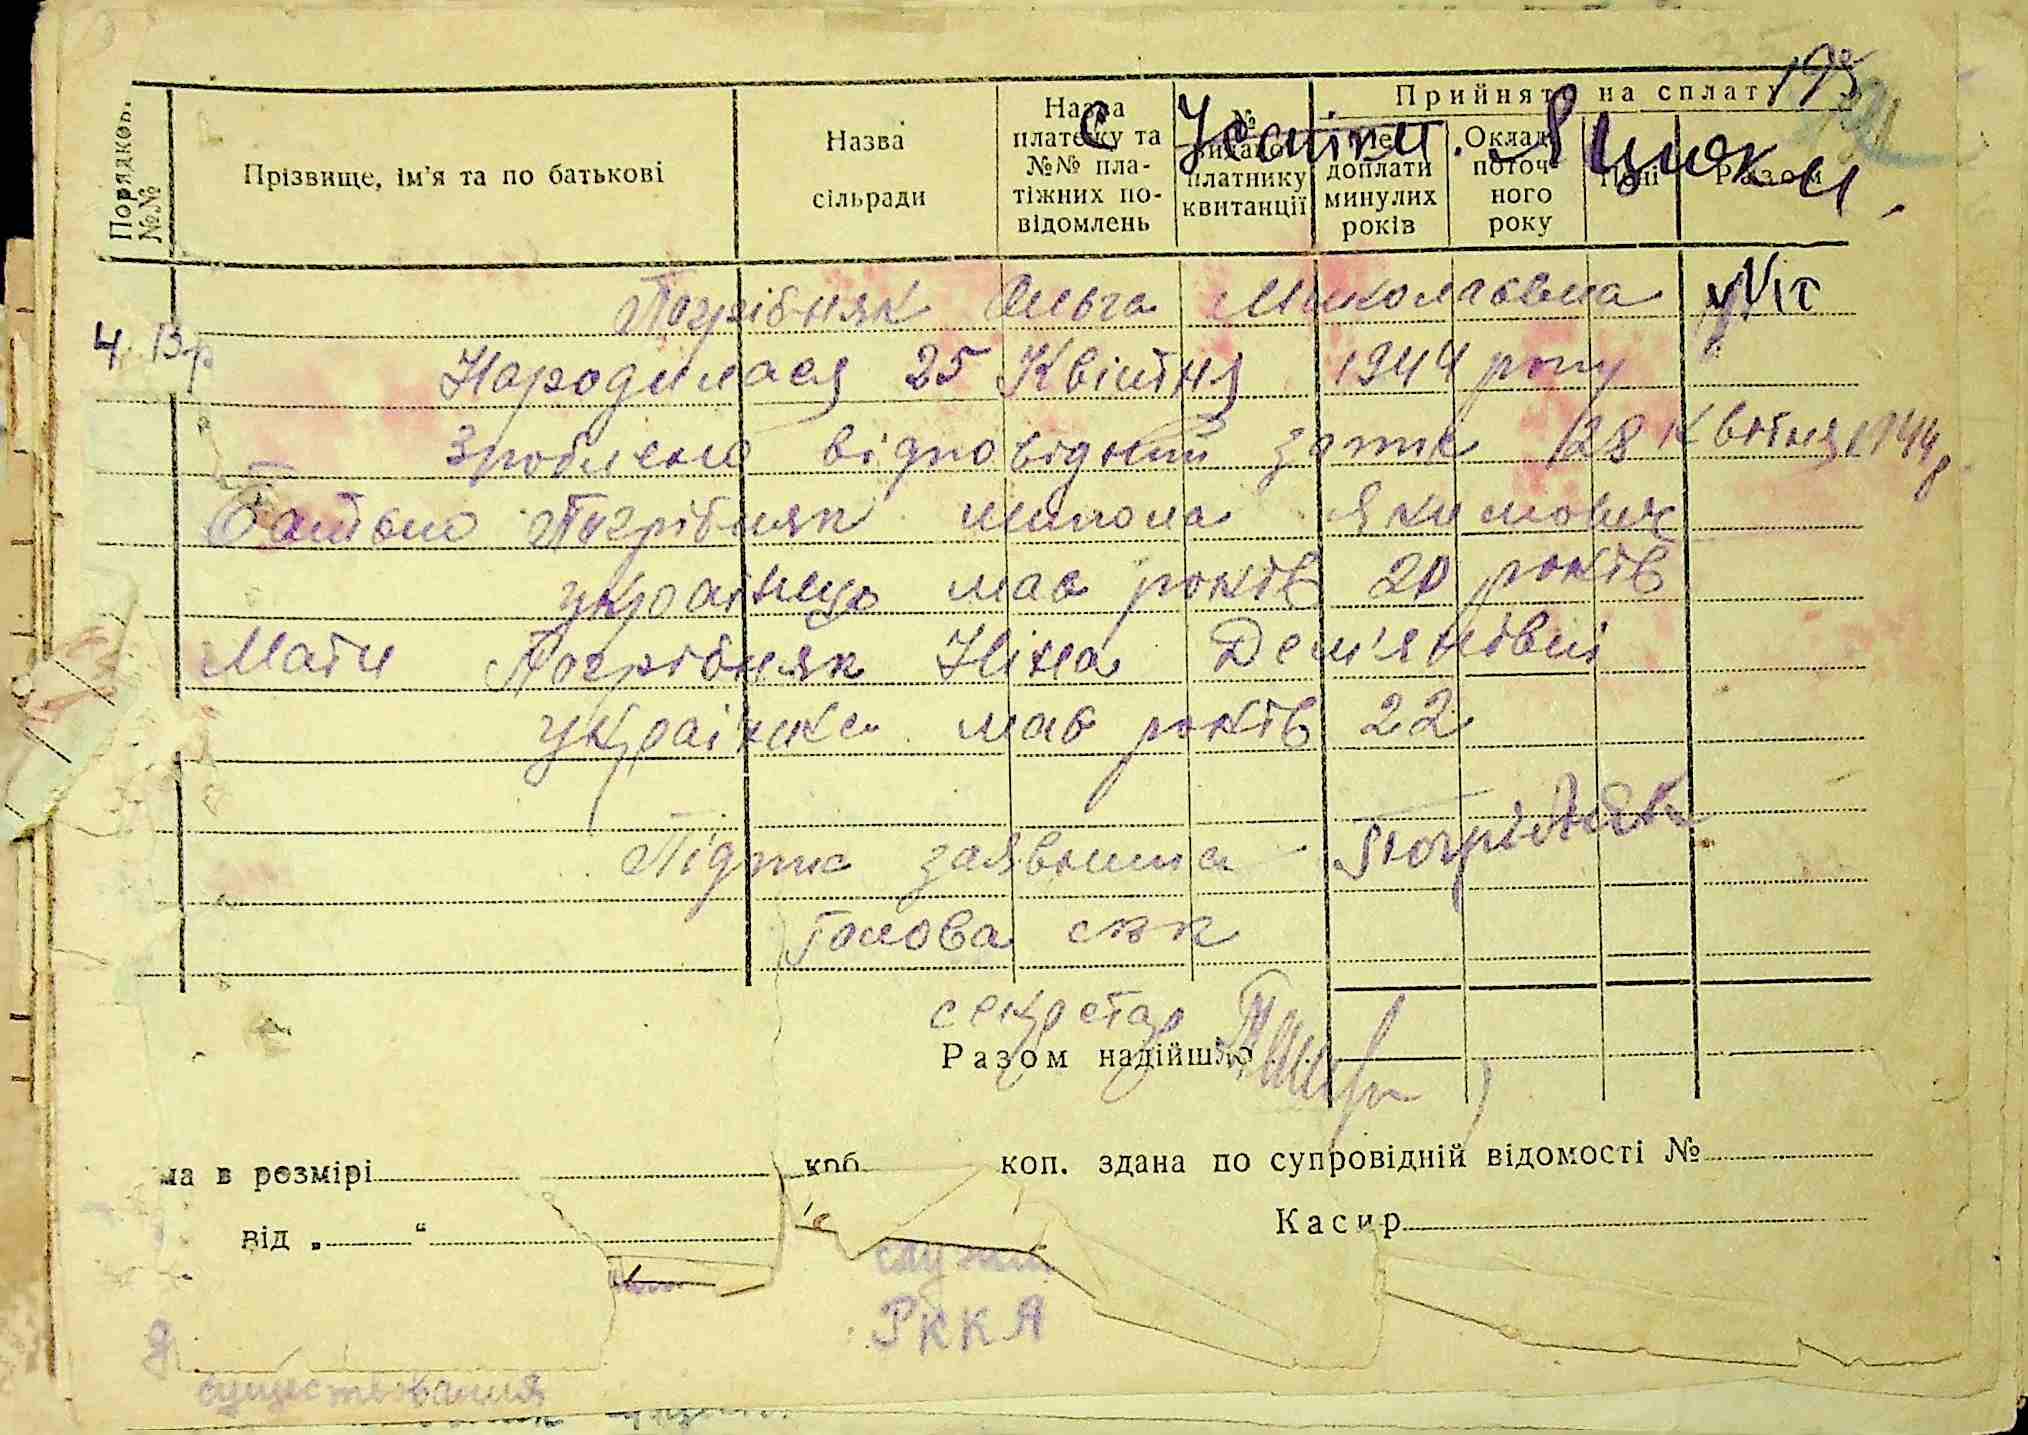 195
с Устим. Яцики.
Порядков. №№
Прізвище, ім'я та по батькові
Назва сільради
Назва платежу та №№ платіжних повідомлень
№ виданої платнику квитанції
Прийнято на сплату
Недоплати минулих років
Оклад поточного року
Пені
Разом
Погрібняк Ольга Миколаївна №17
4. Вр
Народилася 25 Квітня 1944 року
Зроблено відповідний запис 28 Квітня 1944 р
Батько Погрібняк Якимович
українець має років 20 років
Мати Погрібняк Ніна Дем'янівні
українка має років 22
Підпис заявника Погрібняк
Голова свк
секретар
Разом надійшло
ма в розмірі коб. коп. здана по супровідній відомості №
від „ “ Касир
служи
РККА
существования